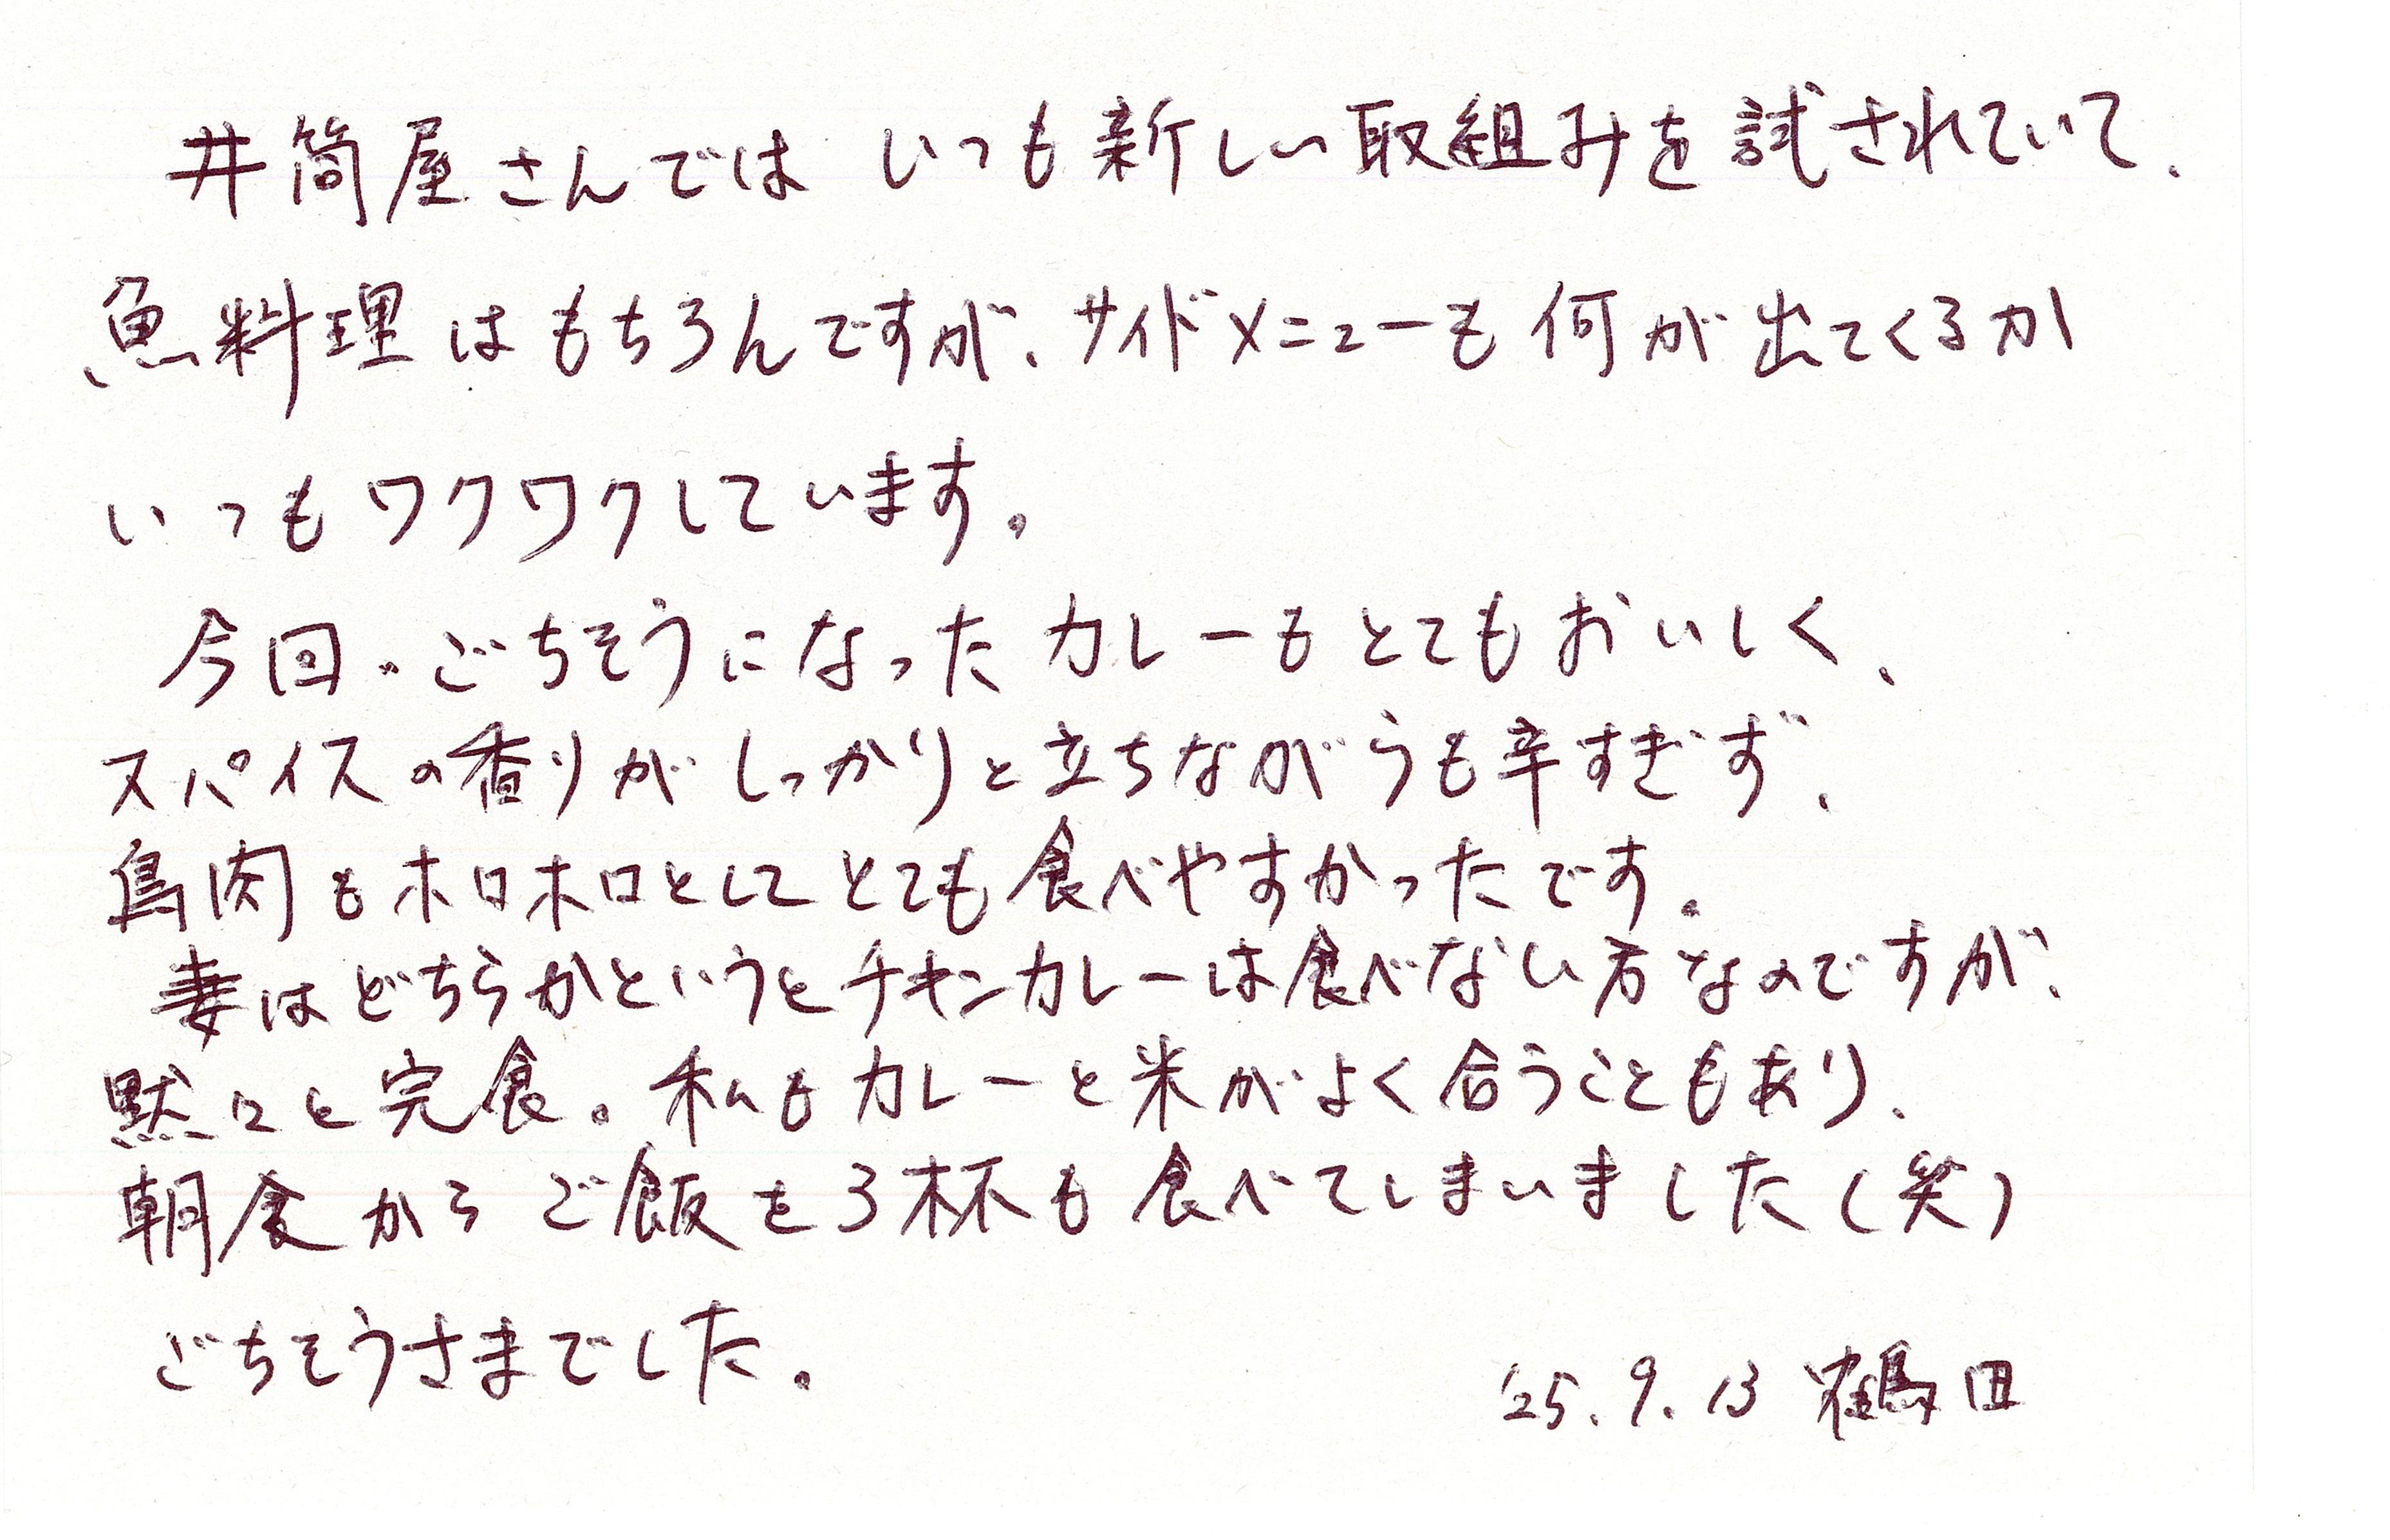 井筒屋さんでは いつも新しい取組みを試されていて、
魚料理はもちろんですが、サイドメニューも何が出てくるか
いつもワクワクしています。
今回、ごちそうになったカレーもとてもおいしく、
スパイスの香りがしっかりと立ちながらも辛すぎず、
鳥肉もホロホロとしてとても食べやすかったです。
妻はどちらかというとチキンカレーは食べない方なのですが、
黙々と完食。私もカレーと米がよく合うこともあり、
朝食からご飯を3杯も食べてしまいました(笑)
ごちそうさまでした。
'25.9.13 鶴田